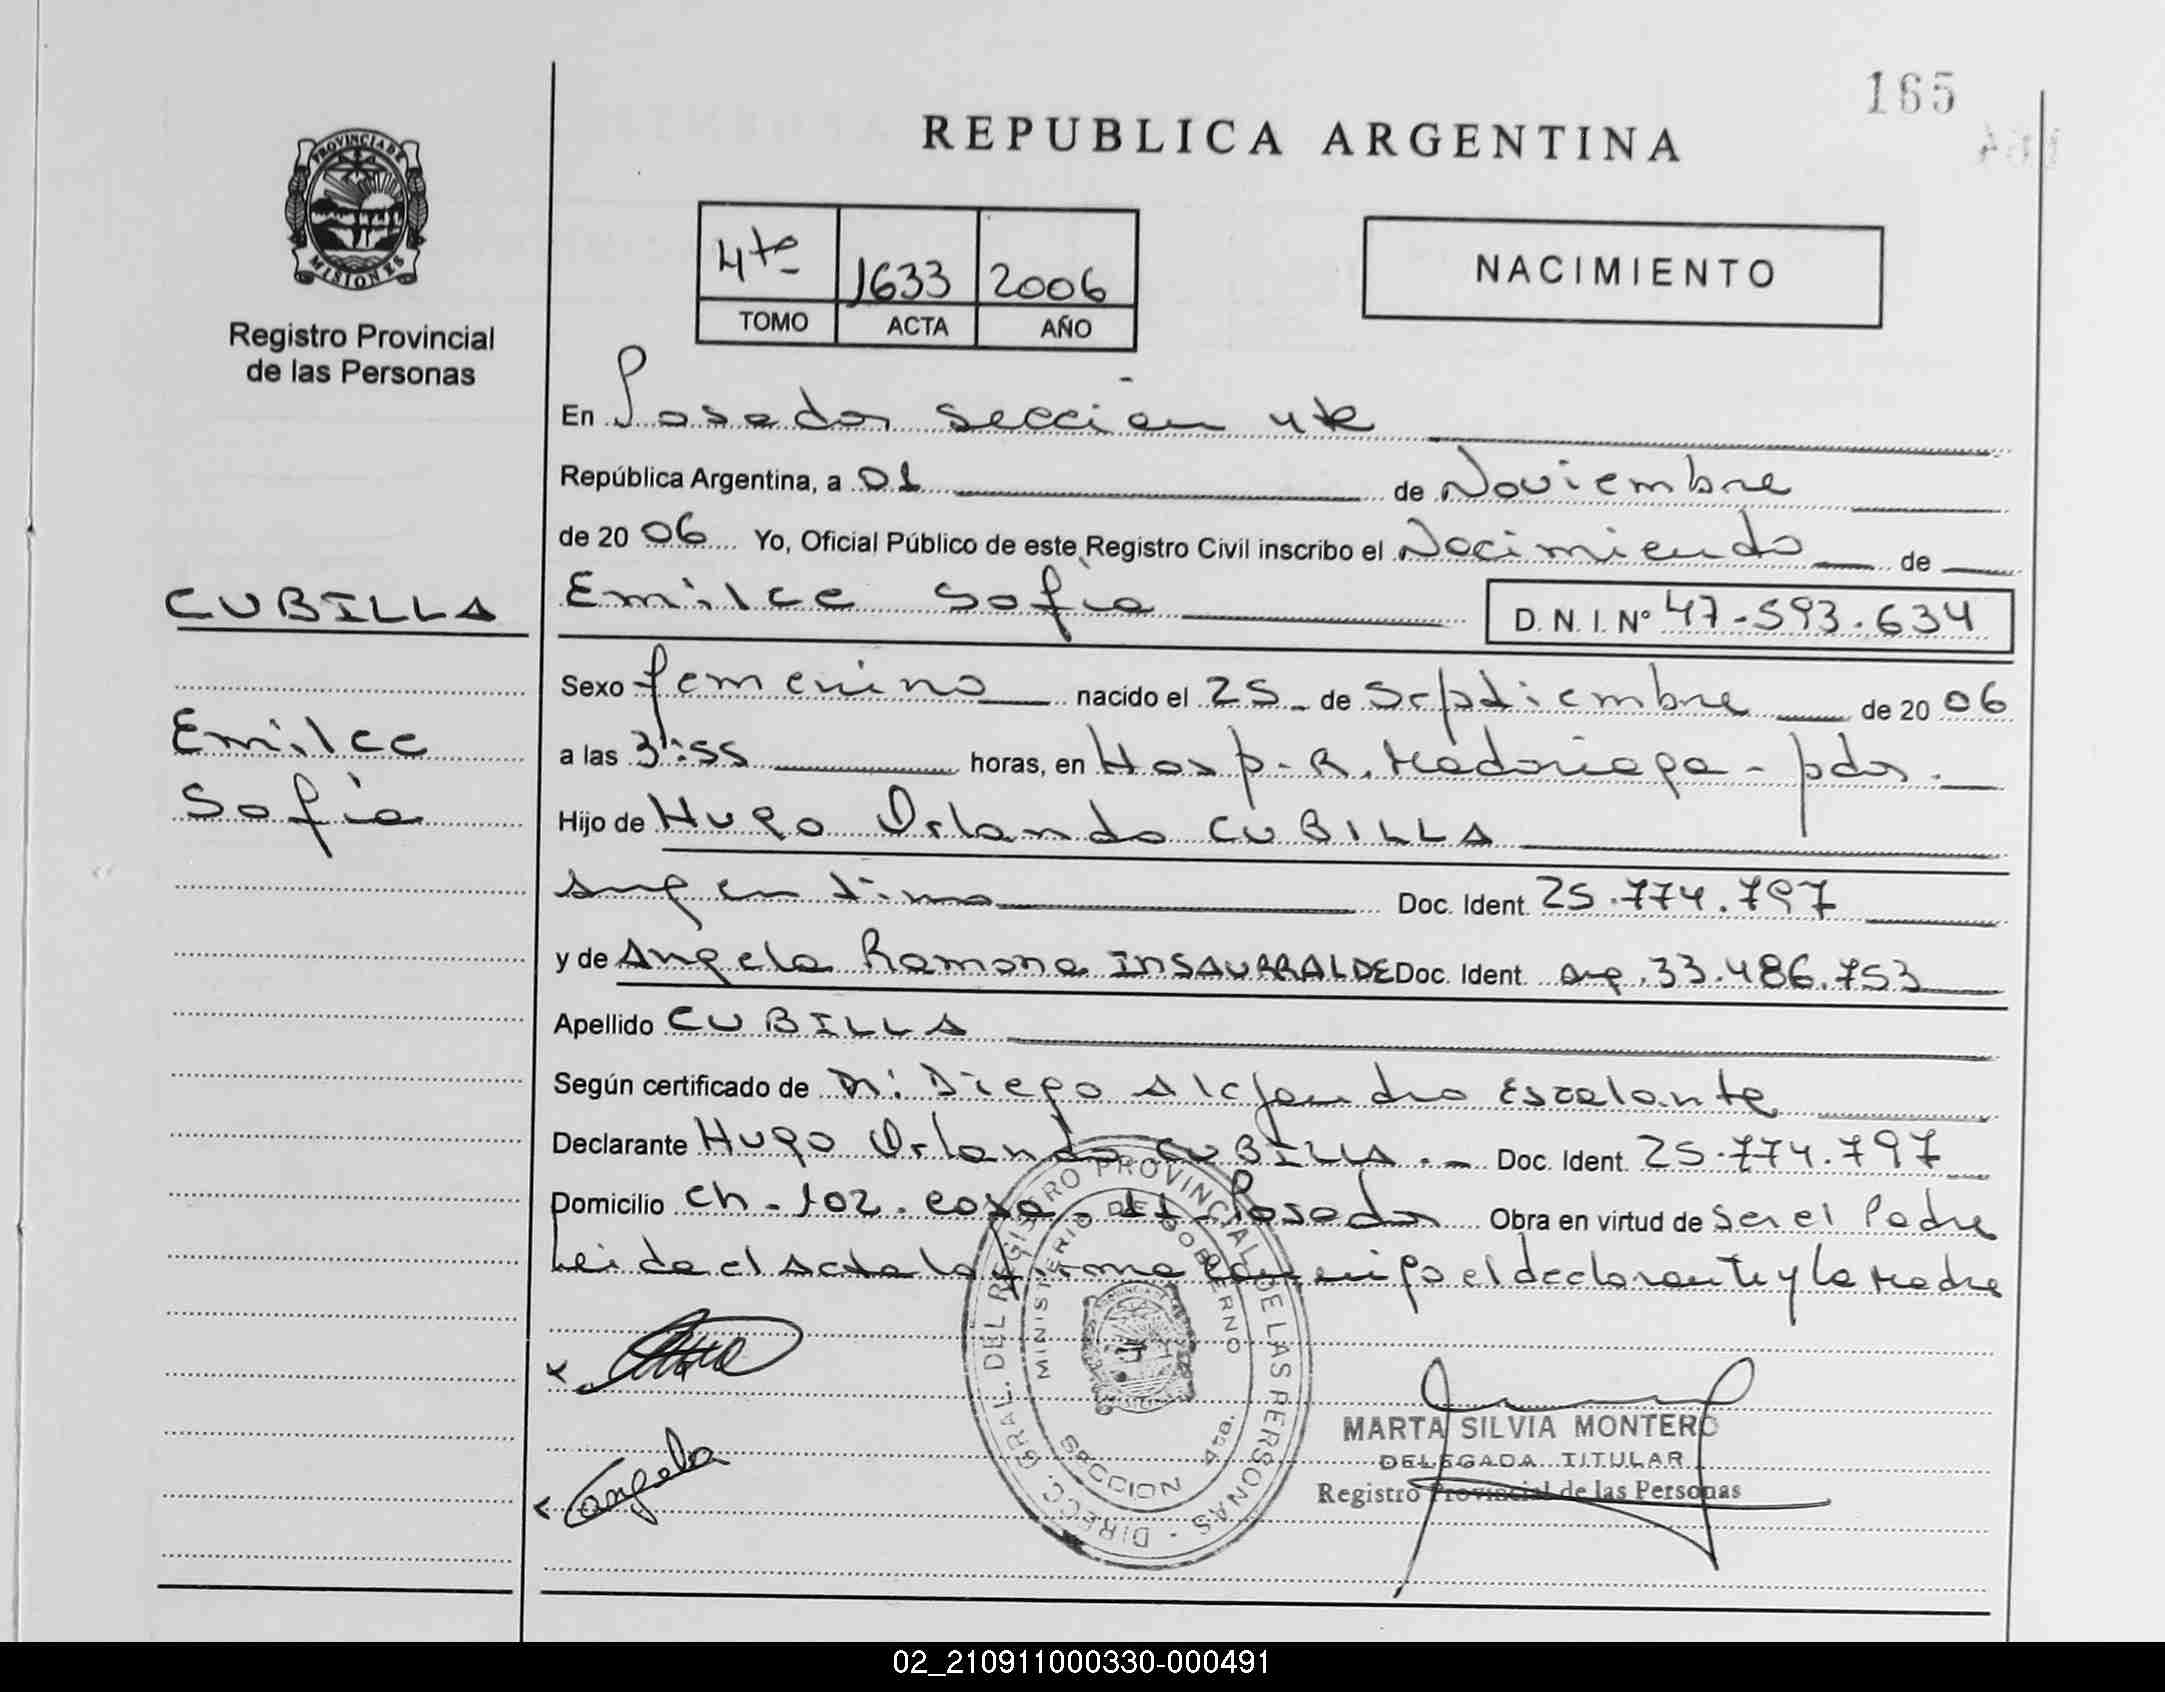 165
REPUBLICA ARGENTINA
PROVINCIA DE
MISIONES
Registro Provincial
de las Personas
4to 1633 2006
TOMO ACTA AÑO
NACIMIENTO
En Posadas sección 4ta
República Argentina, a 01 de Noviembre
de 2006 Yo, Oficial Público de este Registro Civil inscribo el Nacimiento de
CUBILLA
Emilce Sofia D. N. I. Nº 47.593.634
Sexo femenino nacido el 25 de Septiembre de 2006
Emilce
a las 3:55 horas, en Hosp. R. Madariaga - pdas.
Sofia
Hijo de Hugo Orlando CUBILLA
argentino Doc. Ident. 25.774.797
y de Angela Ramona INSAURRALDE Doc. Ident. arg. 33.486.753
Apellido CUBILLA
Según certificado de Dr: Diego Alejandro Escalante
Declarante Hugo Orlando CUBILLA.- Doc. Ident. 25.774.797
Domicilio Ch - 102. casa. 11 - Posadas Obra en virtud de ser el Padre
Leida el Acta la firma conmigo el declarante y la Madre
DIRECC. GRAL. DEL REGISTRO PROVINCIAL DE LAS PERSONAS -
MINISTERIO DE GOBIERNO
SECCION 4ta.
Angela
MARTA SILVIA MONTERO
DELEGADA TITULAR
Registro Provincial de las Personas
02_210911000330-000491